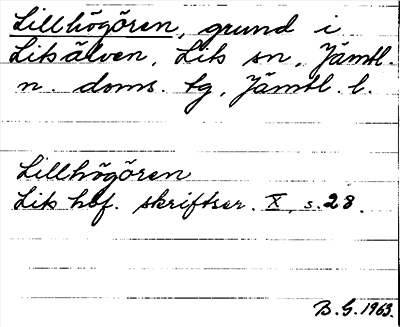 Lillhögören, grund i
Litsälven, Lits sn, Jämtl.
n. doms. tg, Jämtl. l.
Lillhögören
Lits hbf. skriftser. X, s. 28.
B.G. 1963.